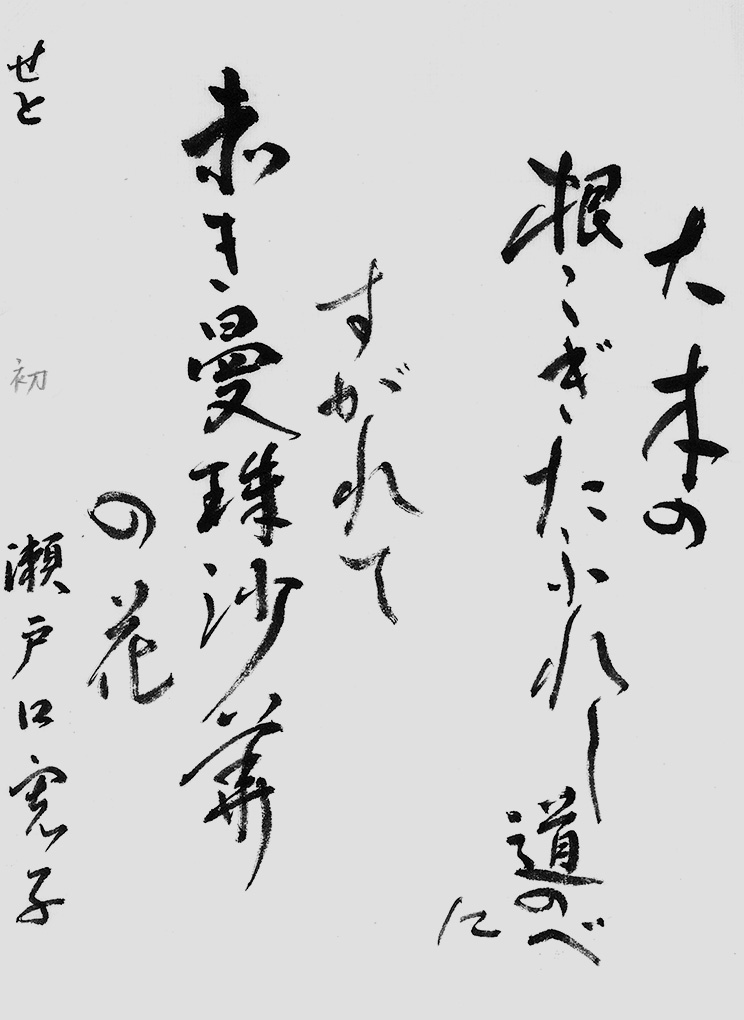 大木の
根こぎたふれし道のべ
に
すがれて
赤き曼珠沙華
の花
せと 初 瀬戸口寛子